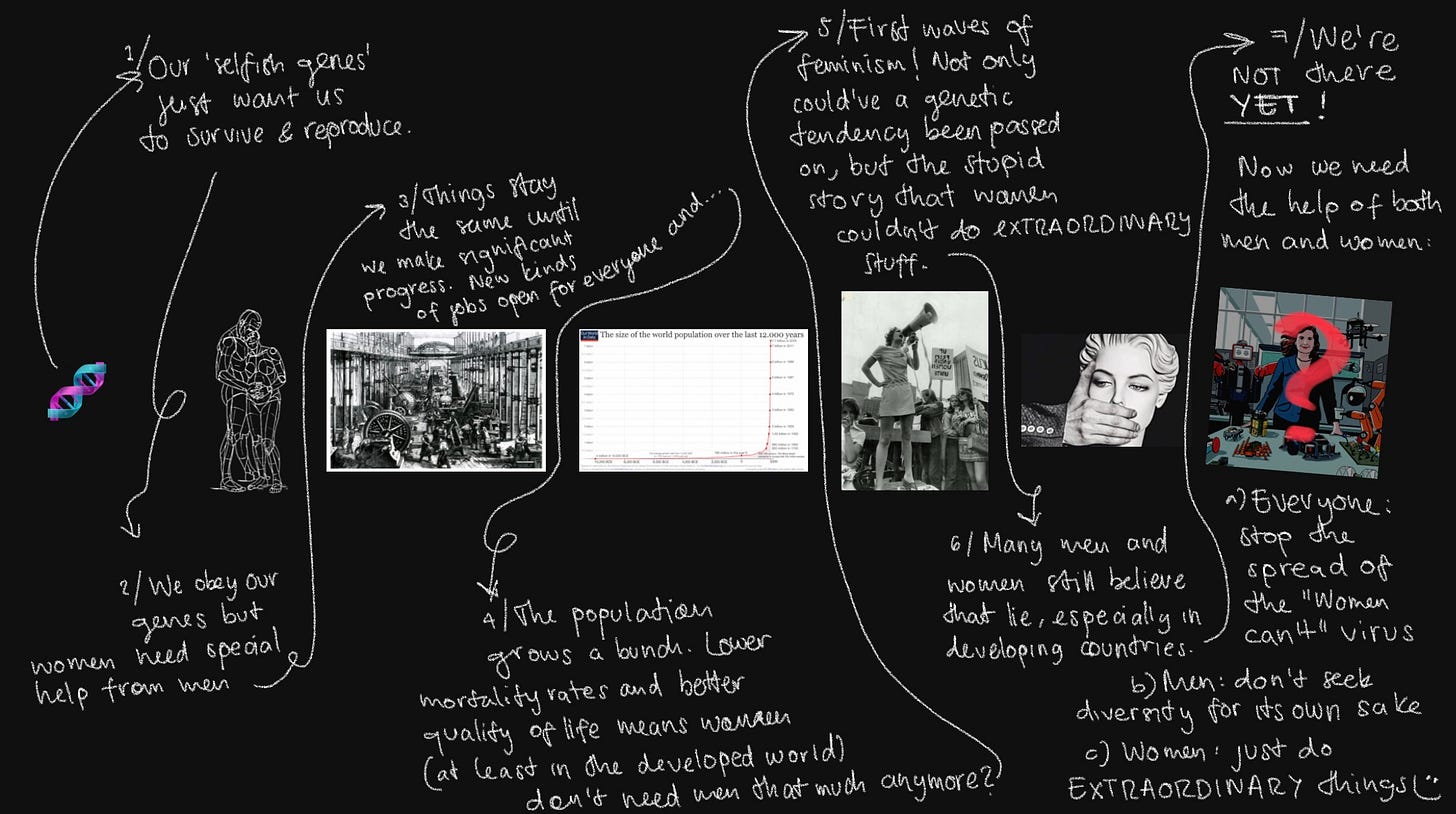 1/Our 'selfish genes'
just want us
to survive & reproduce.
2/We obey our
genes but
women need special
help from men
3/Things stay
the same until
we make significant
progress. New kinds
of jobs open for everyone and...
The size of the world population over the last 12.000 years
4/The population
grows a bunch. Lower
mortality rates and better
quality of life means women
(at least in the developed world)
don't need men that much anymore?
5/First waves of
feminism! Not only
could've a genetic
tendency been passed
on, but the stupid
story that women
couldn't do EXTRAORDINARY
stuff.
6/Many men and
women still believe
that lie, especially in
developing countries.
7/We're
NOT there
YET!
Now we need
the help of both
men and women:
a) Everyone:
stop the
spread of
the "Women
can't" virus
b) Men: don't seek
diversity for its own sake
c) Women: just do
EXTRAORDINARY things